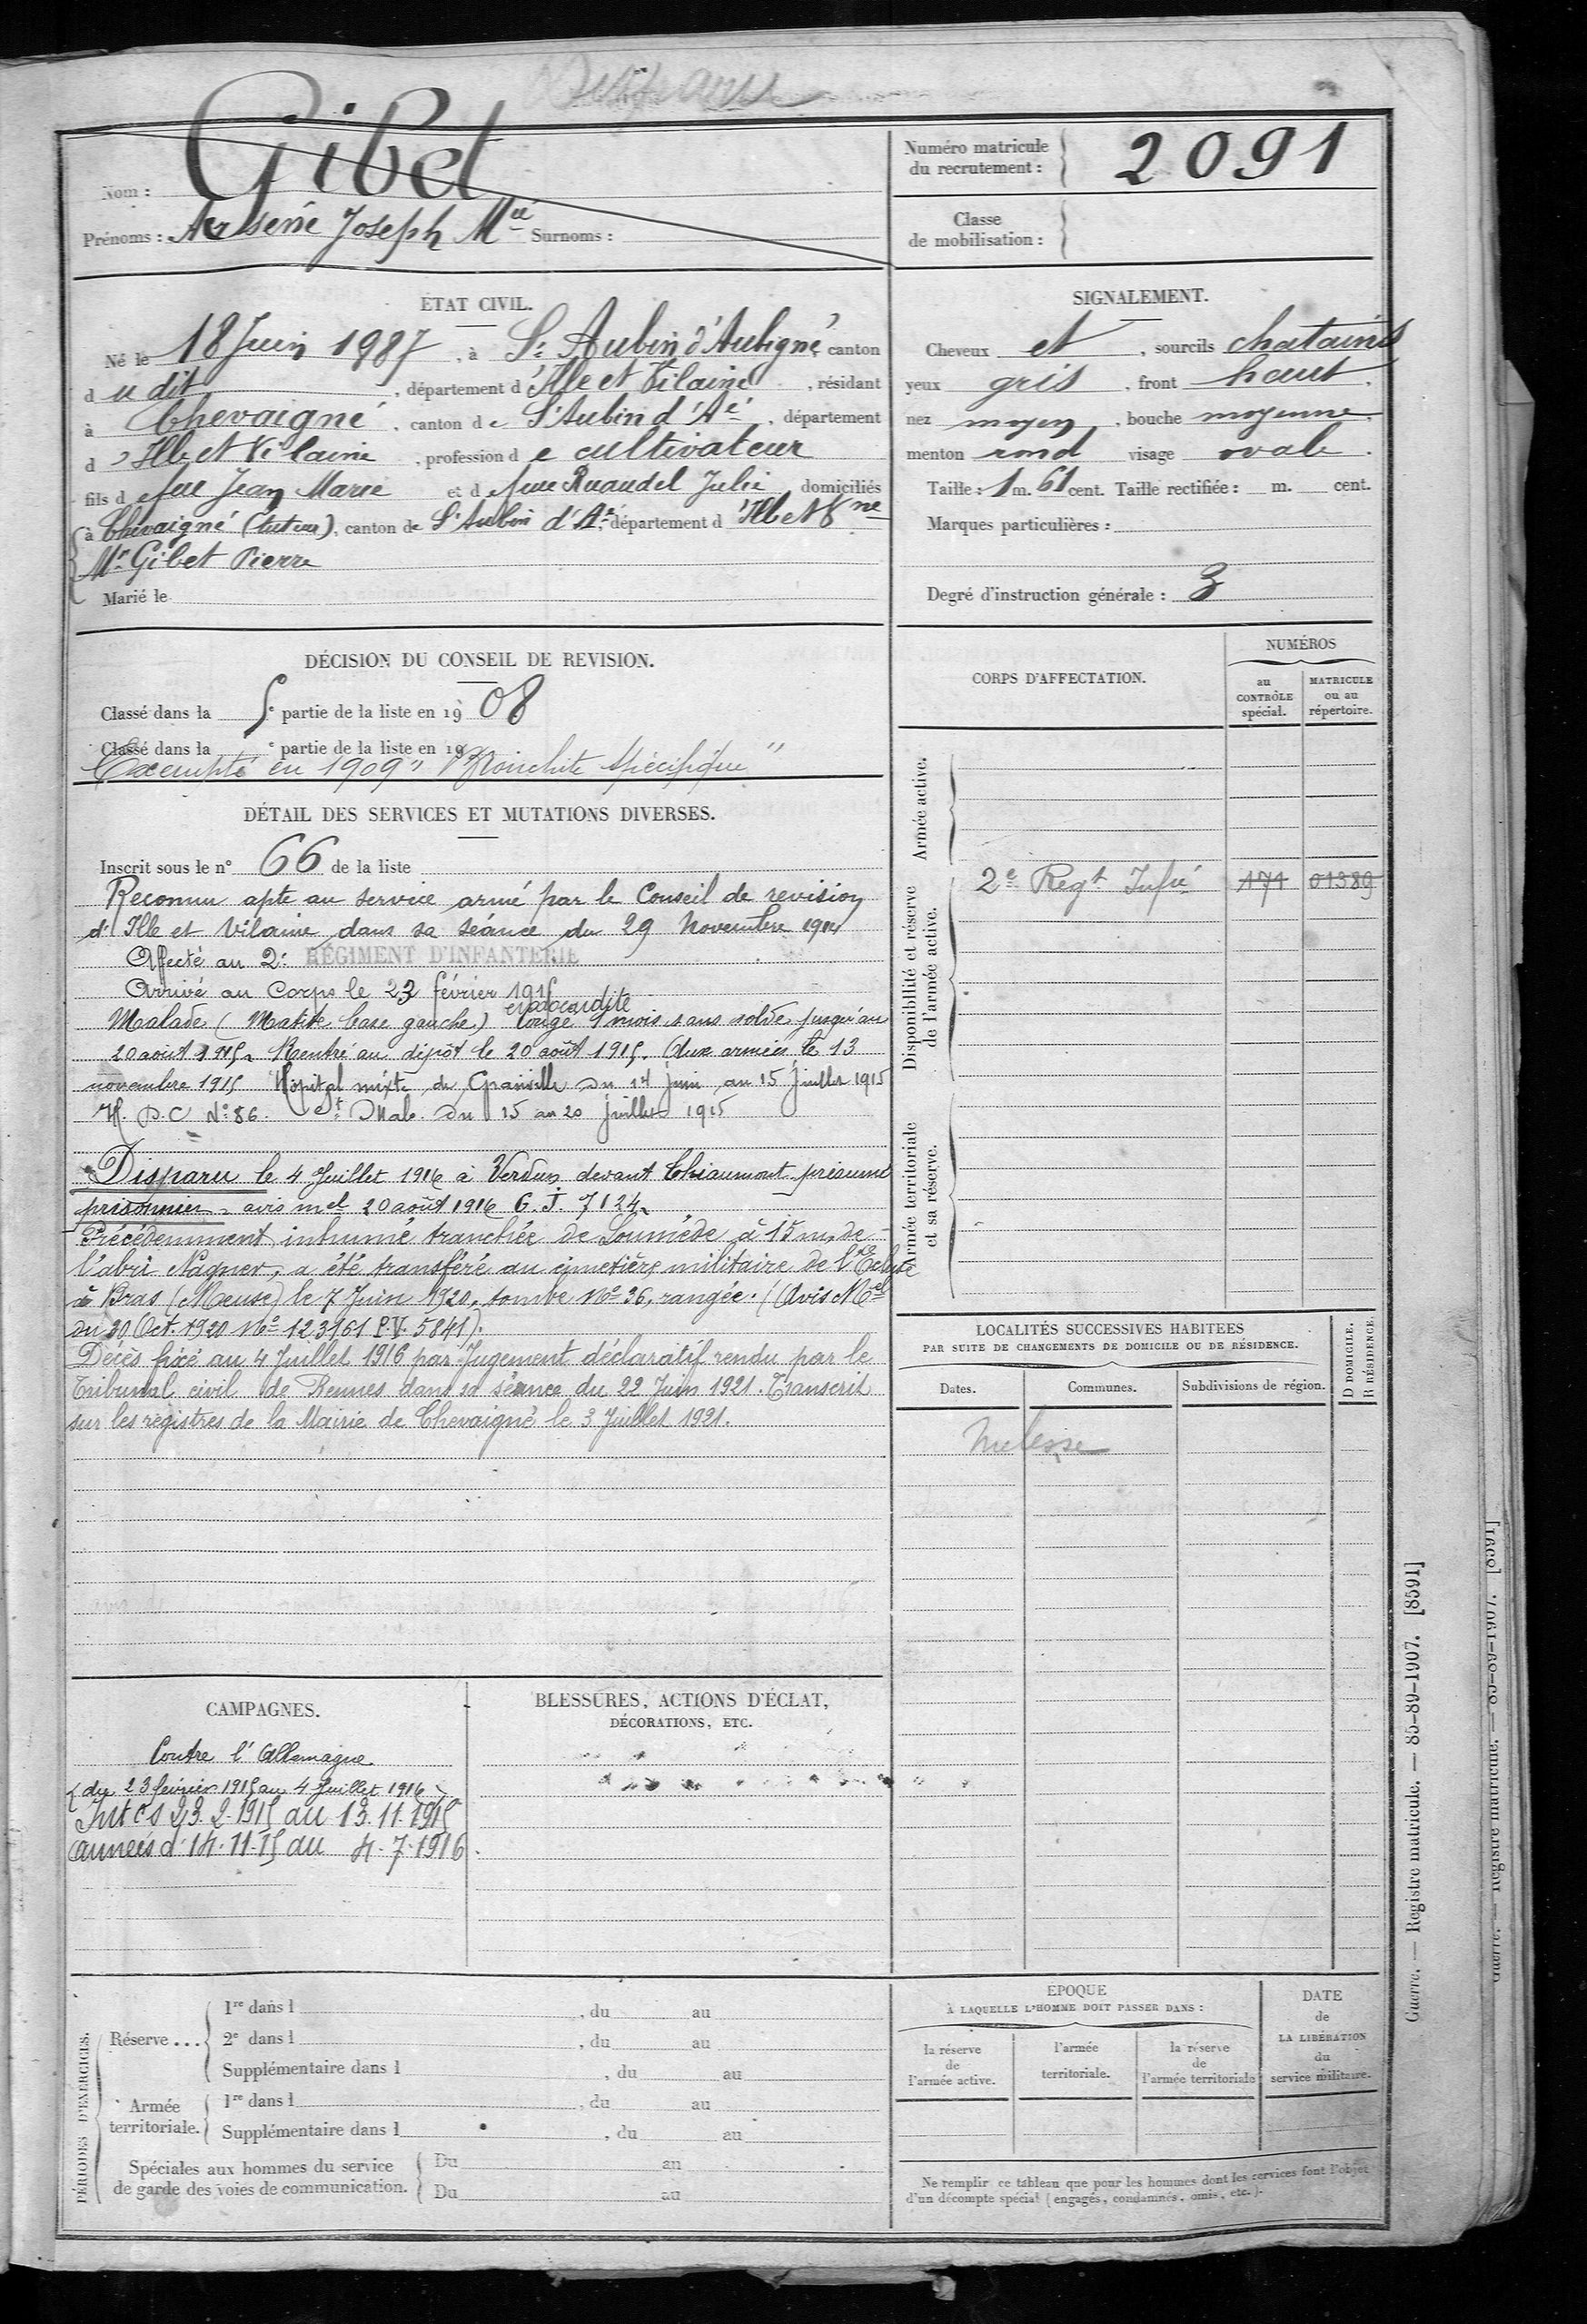 Gibet
Nom :
Prénoms : Arsène Joseph Mie Surnoms :
Numéro matricule
du recrutement : 2091
Classe
de mobilisation :
ÉTAT CIVIL.
Né le 18 Juin 1887, à St Aubin d'Aubigné, canton
d u dit, département d'Ille et Vilaine, résidant
à Chevaigné, canton de St Aubin d'Aé, département
d'Ille et Vilaine, profession de cultivateur
fils de feu Jean Marie et de feue Ruaudel Julie domiciliés
à Chevaigné (tuteur), canton de St Aubin d'Aé, département d'Ille et Vne
Mr Gibet Pierre
Marié le
SIGNALEMENT.
Cheveux et, sourcils chatains
yeux gris, front haut,
nez moyen, bouche moyenne,
menton rond visage ovale.
Taille : 1 m. 61 cent. Taille rectifiée : m. cent.
Marques particulières :
Degré d'instruction générale : 3
DÉCISION DU CONSEIL DE REVISION.
Classé dans la 5e partie de la liste en 1908
Classé dans la e partie de la liste en 19
Exempté en 1909 " Bronchite spécifique "
DÉTAIL DES SERVICES ET MUTATIONS DIVERSES.
Inscrit sous le n° 66 de la liste
Reconnu apte au service armé par le Conseil de revision
d'Ille et Vilaine dans sa séance du 29 Novembre 1914
Affecté au 2e RÉGIMENT D'INFANTERIE
Arrivé au Corps le 23 février 1915
endocardite
Malade (Matité base gauche) Congé 1 mois sans solde jusqu'au
20 août 1915. Rentré au dépôt le 20 août 1915. Aux armées le 13
novembre 1915 Hôpital mixte de Granville du 14 juin au 15 juillet 1915
H. D.C N° 86. St Malo. du 15 au 20 juillet 1915
Disparu le 4 Juillet 1916 à Verdun devant Thiaumont présumé
prisonnier - avis mel 20 août 1916 G. J. 7124
Précédemment inhumé tranchée de à 15 m. de
l'abri, a été transféré au cimetière militaire de l'Ecluse
à Bras (Meuse) le 7 Juin 1920, tombe No 36, rangée. (Avis Mel
du 30 Oct. 1920 No 123961 P.V. 5841).
Décès fixé au 4 Juillet 1916 par Jugement déclaratif rendu par le
Tribunal civil de Rennes dans sa séance du 22 Juin 1921. Transcrit
sur les registres de la Mairie de Chevaigné le 3 Juillet 1921.
CORPS D'AFFECTATION.
NUMÉROS
au
CONTRÔLE
spécial.
MATRICULE
ou au
répertoire.
Armée active.
Disponibilité et réserve
de l'armée active.
2e Regt Infie 171 01389
Armée territoriale
et sa réserve.
LOCALITÉS SUCCESSIVES HABITÉES
PAR SUITE DE CHANGEMENTS DE DOMICILE OU DE RÉSIDENCE.
D DOMICILE.
R RÉSIDENCE.
Dates. Communes. Subdivisions de région.
Melesse
CAMPAGNES.
Contre l'Allemagne
du 23 fevrier 1915 au 4 Juillet 1916
Int cs 23.2.1915 au 13.11.1915
armées d' 14.11.15 au 4.7.1916
BLESSURES, ACTIONS D'ÉCLAT,
DÉCORATIONS, ETC.
PÉRIODES D'EXERCICES.
Réserve ...
1re dans l, du au
2e dans l, du au
Supplémentaire dans l, du au
Armée
territoriale.
1re dans l, du au
Supplémentaire dans l, du au
Spéciales aux hommes du service
de garde des voies de communication.
Du au
Du au
ÉPOQUE
À LAQUELLE L'HOMME DOIT PASSER DANS :
la réserve
de
l'armée active.
l'armée
territoriale.
la réserve
de
l'armée territoriale
DATE
de
LA LIBÉRATION
du
service militaire.
Ne remplir ce tableau que pour les hommes dont les services font l'objet
d'un décompte spécial (engagés, condamnés, omis, etc.).
Guerre. — Registre matricule. — 85-89-1907. [8591]
Guerre. — Registre matricule. — 85-89-1907. [8591]